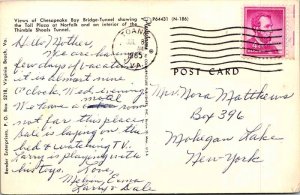 Views of Chesapeake Bay Bridge-Tunnel showing
the Toll Plaza at Norfolk and an interior of the
Thimble Shoals Tunnel.
P64431 (N-186)
Hello Mother,
We are having a
few days of vacation
it is almost nine
o'clock, Wed. evening
We have a motel
room
not far this place
Dale is laying on the
bed & watching T.V.
Larry is playing with
his toys. Love,
Melvin, Erma
Larry & Dale
1965
VA.
POST CARD
Mrs. Nora Matthews
Box 396
Mohegan Lake
New York